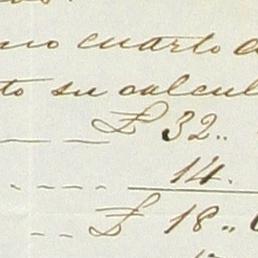 no cuarto
to su calcul
₤ 32..
14.
₤ 18..